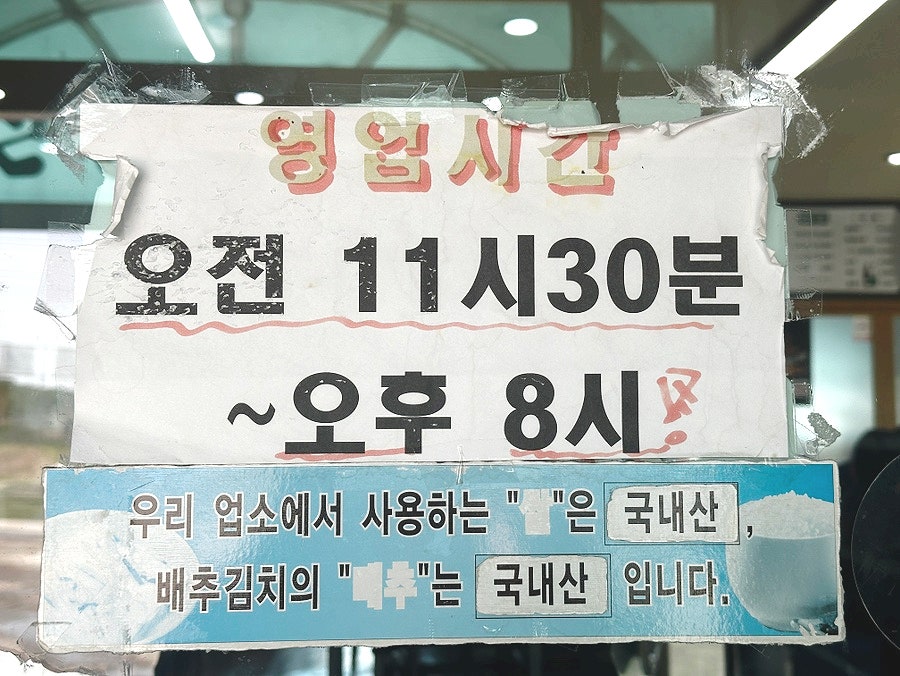 영업시간
오전 11시30분
~오후 8시
우리 업소에서 사용하는 "쌀"은 국내산,
배추김치의 "배추"는 국내산 입니다.